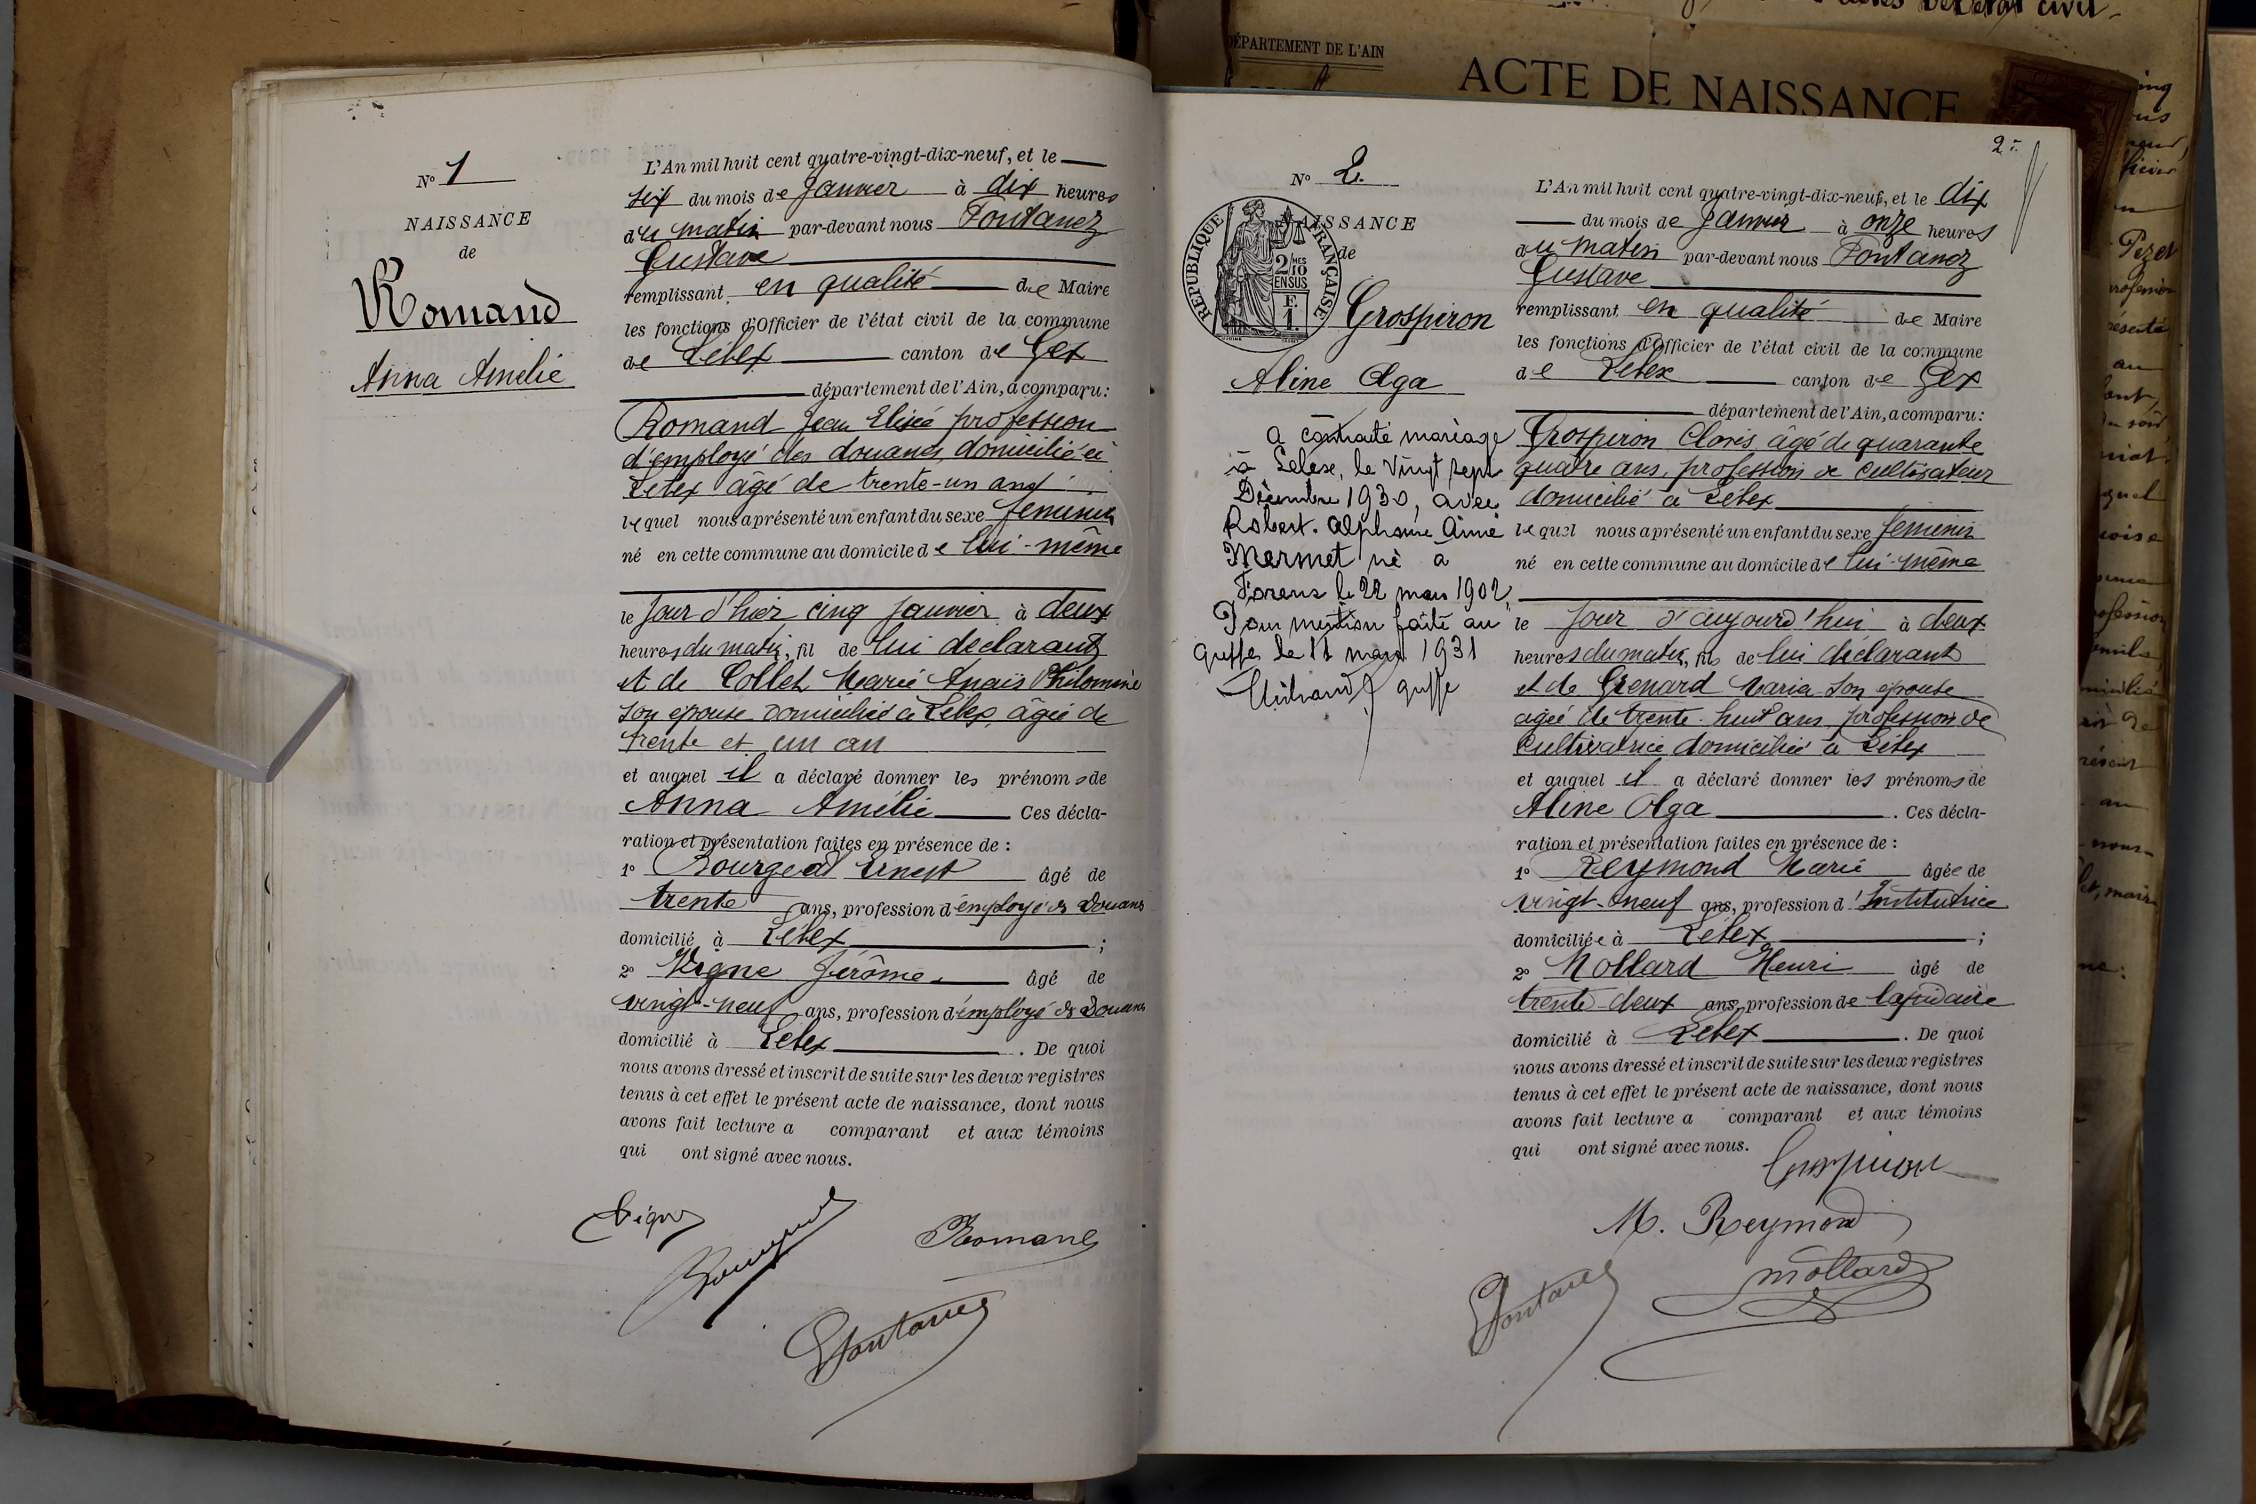 N° 1
NAISSANCE
de
Romand
Anna Amélie
L'An mil huit cent quatre-vingt-dix-neuf, et le
six du mois de Janvier à dix heures
du matin par-devant nous Fontanez
Gustave
remplissant en qualité de Maire
les fonctions d'Officier de l'état civil de la commune
de Lélex canton de Gex
département de l'Ain, a comparu:
Romand Jean Elisée profession
d'employé des douanes domicilié à
Lélex âgé de trente-un ans
lequel nous a présenté un enfant du sexe féminin
né en cette commune au domicile de lui-même
le jour d'hier cinq janvier à deux
heures du matin, fil de lui déclarant
et de Collet Marie Anaïs Philomène
son épouse domiciliée à Lélex âgée de
trente et un an
et auquel il a déclaré donner les prénoms de
Anna Amélie Ces décla-
ration et présentation faites en présence de :
1° Bourgeat Ernest âgé de
trente ans, profession d'employé des Douanes
domicilié à Lélex ;
2° Vigne Jérôme âgé de
vingt-neuf ans, profession d'employé des Douanes
domicilié à Lélex . De quoi
nous avons dressé et inscrit de suite sur les deux registres
tenus à cet effet le présent acte de naissance, dont nous
avons fait lecture a comparant et aux témoins
qui ont signé avec nous.
Romand
Fontanez
DÉPARTEMENT DE L'AIN
ACTE DE NAISSANCE
2
N° 2
NAISSANCE
de
RÉPUBLIQUE FRANÇAISE
2/10
EN SUS
Grospiron
Aline Olga
a contracté mariage
à Lelex, le vingt sept
Décembre 1930, avec
Robert Alphonse Aimé
Mermet né à
Forens le 22 mars 1902,
Pour mention faite au
greffe le 11 mars 1931
greffe
L'An mil huit cent quatre-vingt-dix-neuf, et le dix
du mois de Janvier à onze heures
du matin par-devant nous Fontanez
Gustave
remplissant en qualité de Maire
les fonctions d'Officier de l'état civil de la commune
de Lélex canton de Gex
département de l'Ain, a comparu:
Grospiron Clovis âgé de quarante
quatre ans, profession de cultivateur
domicilié à Lélex
lequel nous a présenté un enfant du sexe féminin
né en cette commune au domicile de lui-même
le jour d'aujourd'hui à deux
heures du matin, fils de lui déclarant
et de Grenard Maria son épouse
agée de trente-huit ans profession de
cultivatrice domiciliée à Lélex
et auquel il a déclaré donner les prénoms de
Aline Olga . Ces décla-
ration et présentation faites en présence de :
1° Reymond Marie âgée de
vingt-neuf ans, profession d'Institutrice
domiciliée à Lélex ;
2° Mollard Henri âgé de
trente-deux ans, profession de lapidaire
domicilié à Lélex . De quoi
nous avons dressé et inscrit de suite sur les deux registres
tenus à cet effet le présent acte de naissance, dont nous
avons fait lecture a comparant et aux témoins
qui ont signé avec nous.
Grospiron
M. Reymond
Mollard
Fontanez